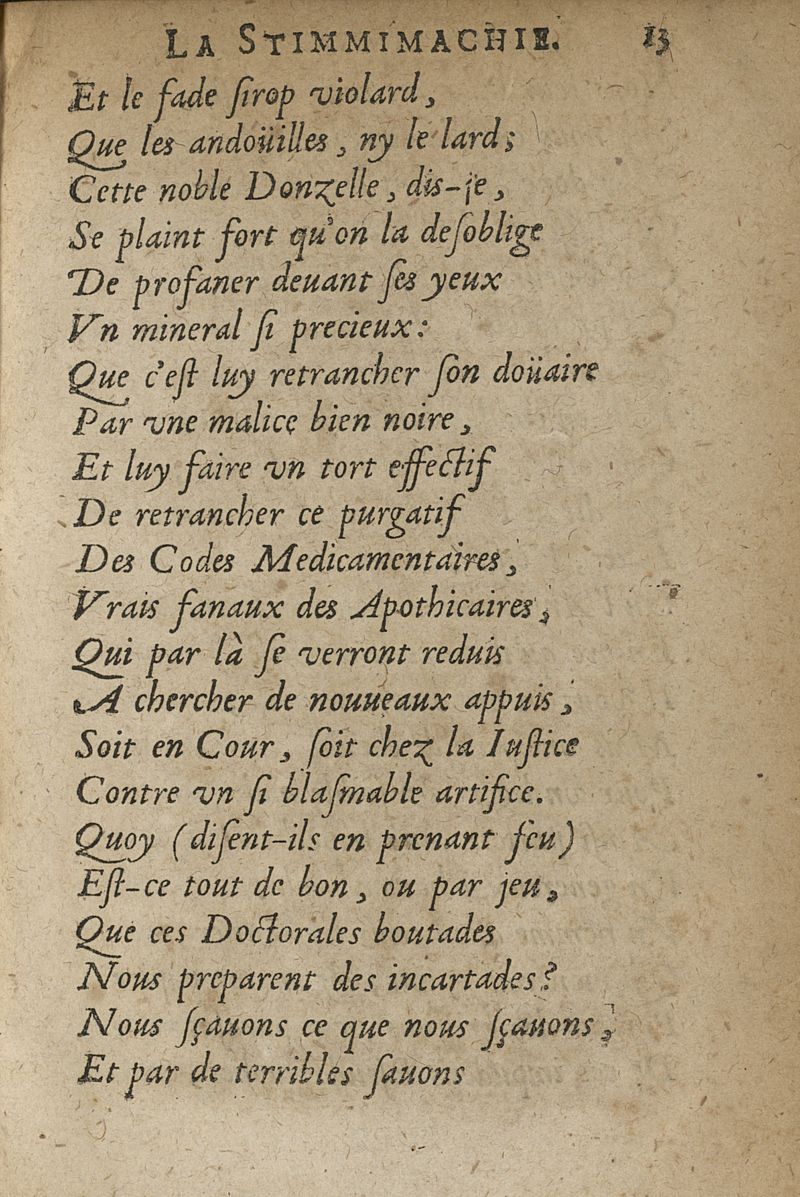 LA STIMMIMACHIE. 13
Et le fade ſirop violard,
Que les andoüilles, ny le lard;
Cette noble Donzelle, dis-je,
Se plaint fort qu'on la deſoblige
De profaner deuant ſes yeux
Vn mineral ſi precieux:
Que c'eſt luy retrancher ſon doüaire
Par vne malice bien noire,
Et luy faire vn tort effectif
De retrancher ce purgatif
Des Codes Medicamentaires,
Vrais fanaux des Apothicaires,
Qui par là ſe verront reduis
A chercher de nouueaux appuis,
Soit en Cour, ſoit chez la Iuſtice
Contre vn ſi blaſmable artifice.
Quoy (diſent-ils en prenant feu)
Eſt-ce tout de bon, ou par jeu,
Que ces Doctorales boutades
Nous preparent des incartades?
Nous ſçauons ce que nous ſçauons,
Et par de terribles ſauons